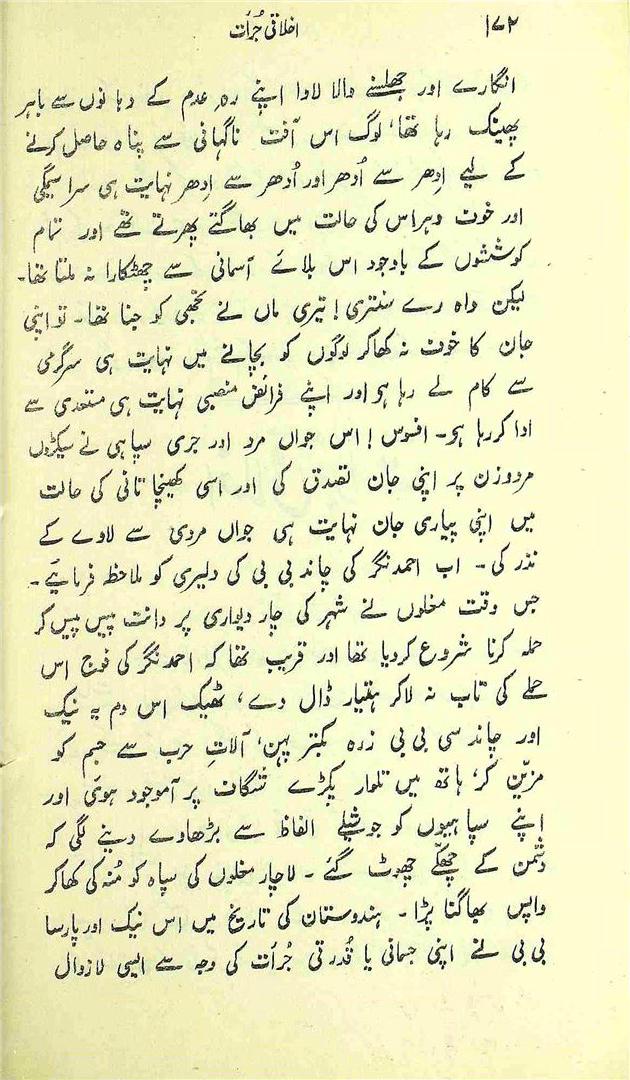 ۱۷۲ اخلاقی جُرأت
انگارے اور جھلسنے والا لاوا اپنے رہِ عدم کے دہانوں سے باہر
پھینک رہا تھا، لوگ اس آفت ناگہانی سے پناہ حاصل کرنے
کے لیے اِدھر سے اُدھر اور اُدھر سے اِدھر نہایت ہی سراسیمگی
اور خوف وہراس کی حالت میں بھاگتے پھرتے تھے اور تمام
کوششوں کے باوجود اس بلائے آسمانی سے چھٹکارا نہ ملتا تھا۔
لیکن واہ رے سنتری! تیری ماں نے تجھی کو جنا تھا۔ تو اپنی
جان کا خوف نہ کھاکر لوگوں کو بچانے میں نہایت ہی سرگرمی
سے کام لے رہا ہو اور اپنے فرائض منصبی نہایت ہی مستعدی سے
ادا کررہا ہو۔ افسوس! اس جواں مرد اور جری سپاہی نے سیکڑوں
مردوزن پر اپنی جان تصدق کی اور اسی کھینچا تانی کی حالت
میں اپنی پیاری جان نہایت ہی جواں مردی سے لاوے کے
نذر کی۔ اب احمدنگر کی چاند بی بی کی دلیری کو ملاحظہ فرمائیے۔
جس وقت مغلوں نے شہر کی چار دیواری پر دانت پیس پیس کر
حملہ کرنا شروع کردیا تھا اور قریب تھا کہ احمدنگر کی فوج اس
حملے کی تاب نہ لاکر ہتیار ڈال دے، ٹھیک اس دم یہ نیک
اور چاند سی بی بی زرہ بکتر پہن، آلاتِ حرب سے جسم کو
مزیّن کر، ہاتھ میں تلوار پکڑے شگاف پر آموجود ہوئی اور
اپنے سپاہیوں کو جوشیلے الفاظ سے بڑھاوے دینے لگی کہ
دشمن کے چھکّے چھوٹ گئے۔ لاچار مغلوں کی سپاہ کو مُنہ کی کھاکر
واپس بھاگنا پڑا۔ ہندوستان کی تاریخ میں اس نیک اور پارسا
بی بی نے اپنی جسمانی یا قُدرتی جُرأت کی وجہ سے ایسی لازوال